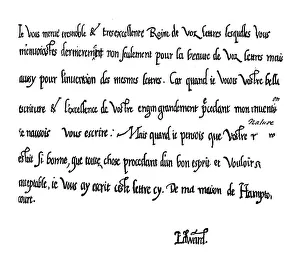 Ie Vous mercie tresnoble & tresexcellente Roine de Voz lettres lesquelles Vous
m'enuoiastes dernierement non seulement pour la beaute de Voz lettres mais
aussy pour l'inuention des mesmes lettres. Car quand ie Voiois Vostre belle
escriture & l'excellence de Vostre engin grandement precedant mon inuention
ie nausois Vous escrire: Mais quand ie pensois que Vostre
nature
estoit si bonne, que toute chose procedant dun bon esprit et Vouloir
acceptable, ie Vous ay escrit ceste lettre cy. De ma maison de Hampton
court.
Edward.